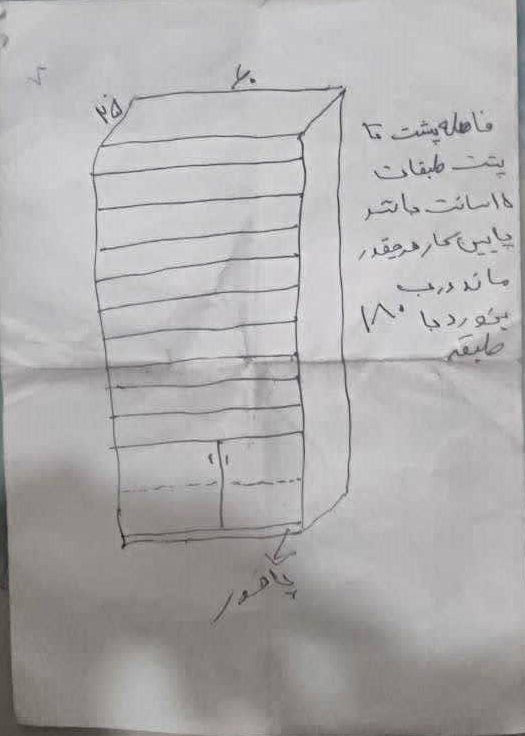 ۶۰
۲۵
فاصله پشت تا
پشت طبقات
۱۵ سانت باشد
پایین کار هر چقدر
ماند درب
بخورد با ۱۸۰
طبقه
پاخور